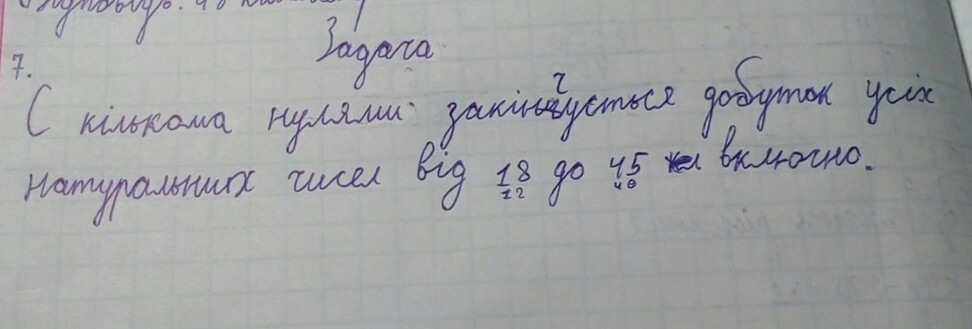 Відповідь: 48
Задача
7.
С кількома нулями закінчується добуток усіх
натуральних чисел від 18 до 45 включно.
12 40